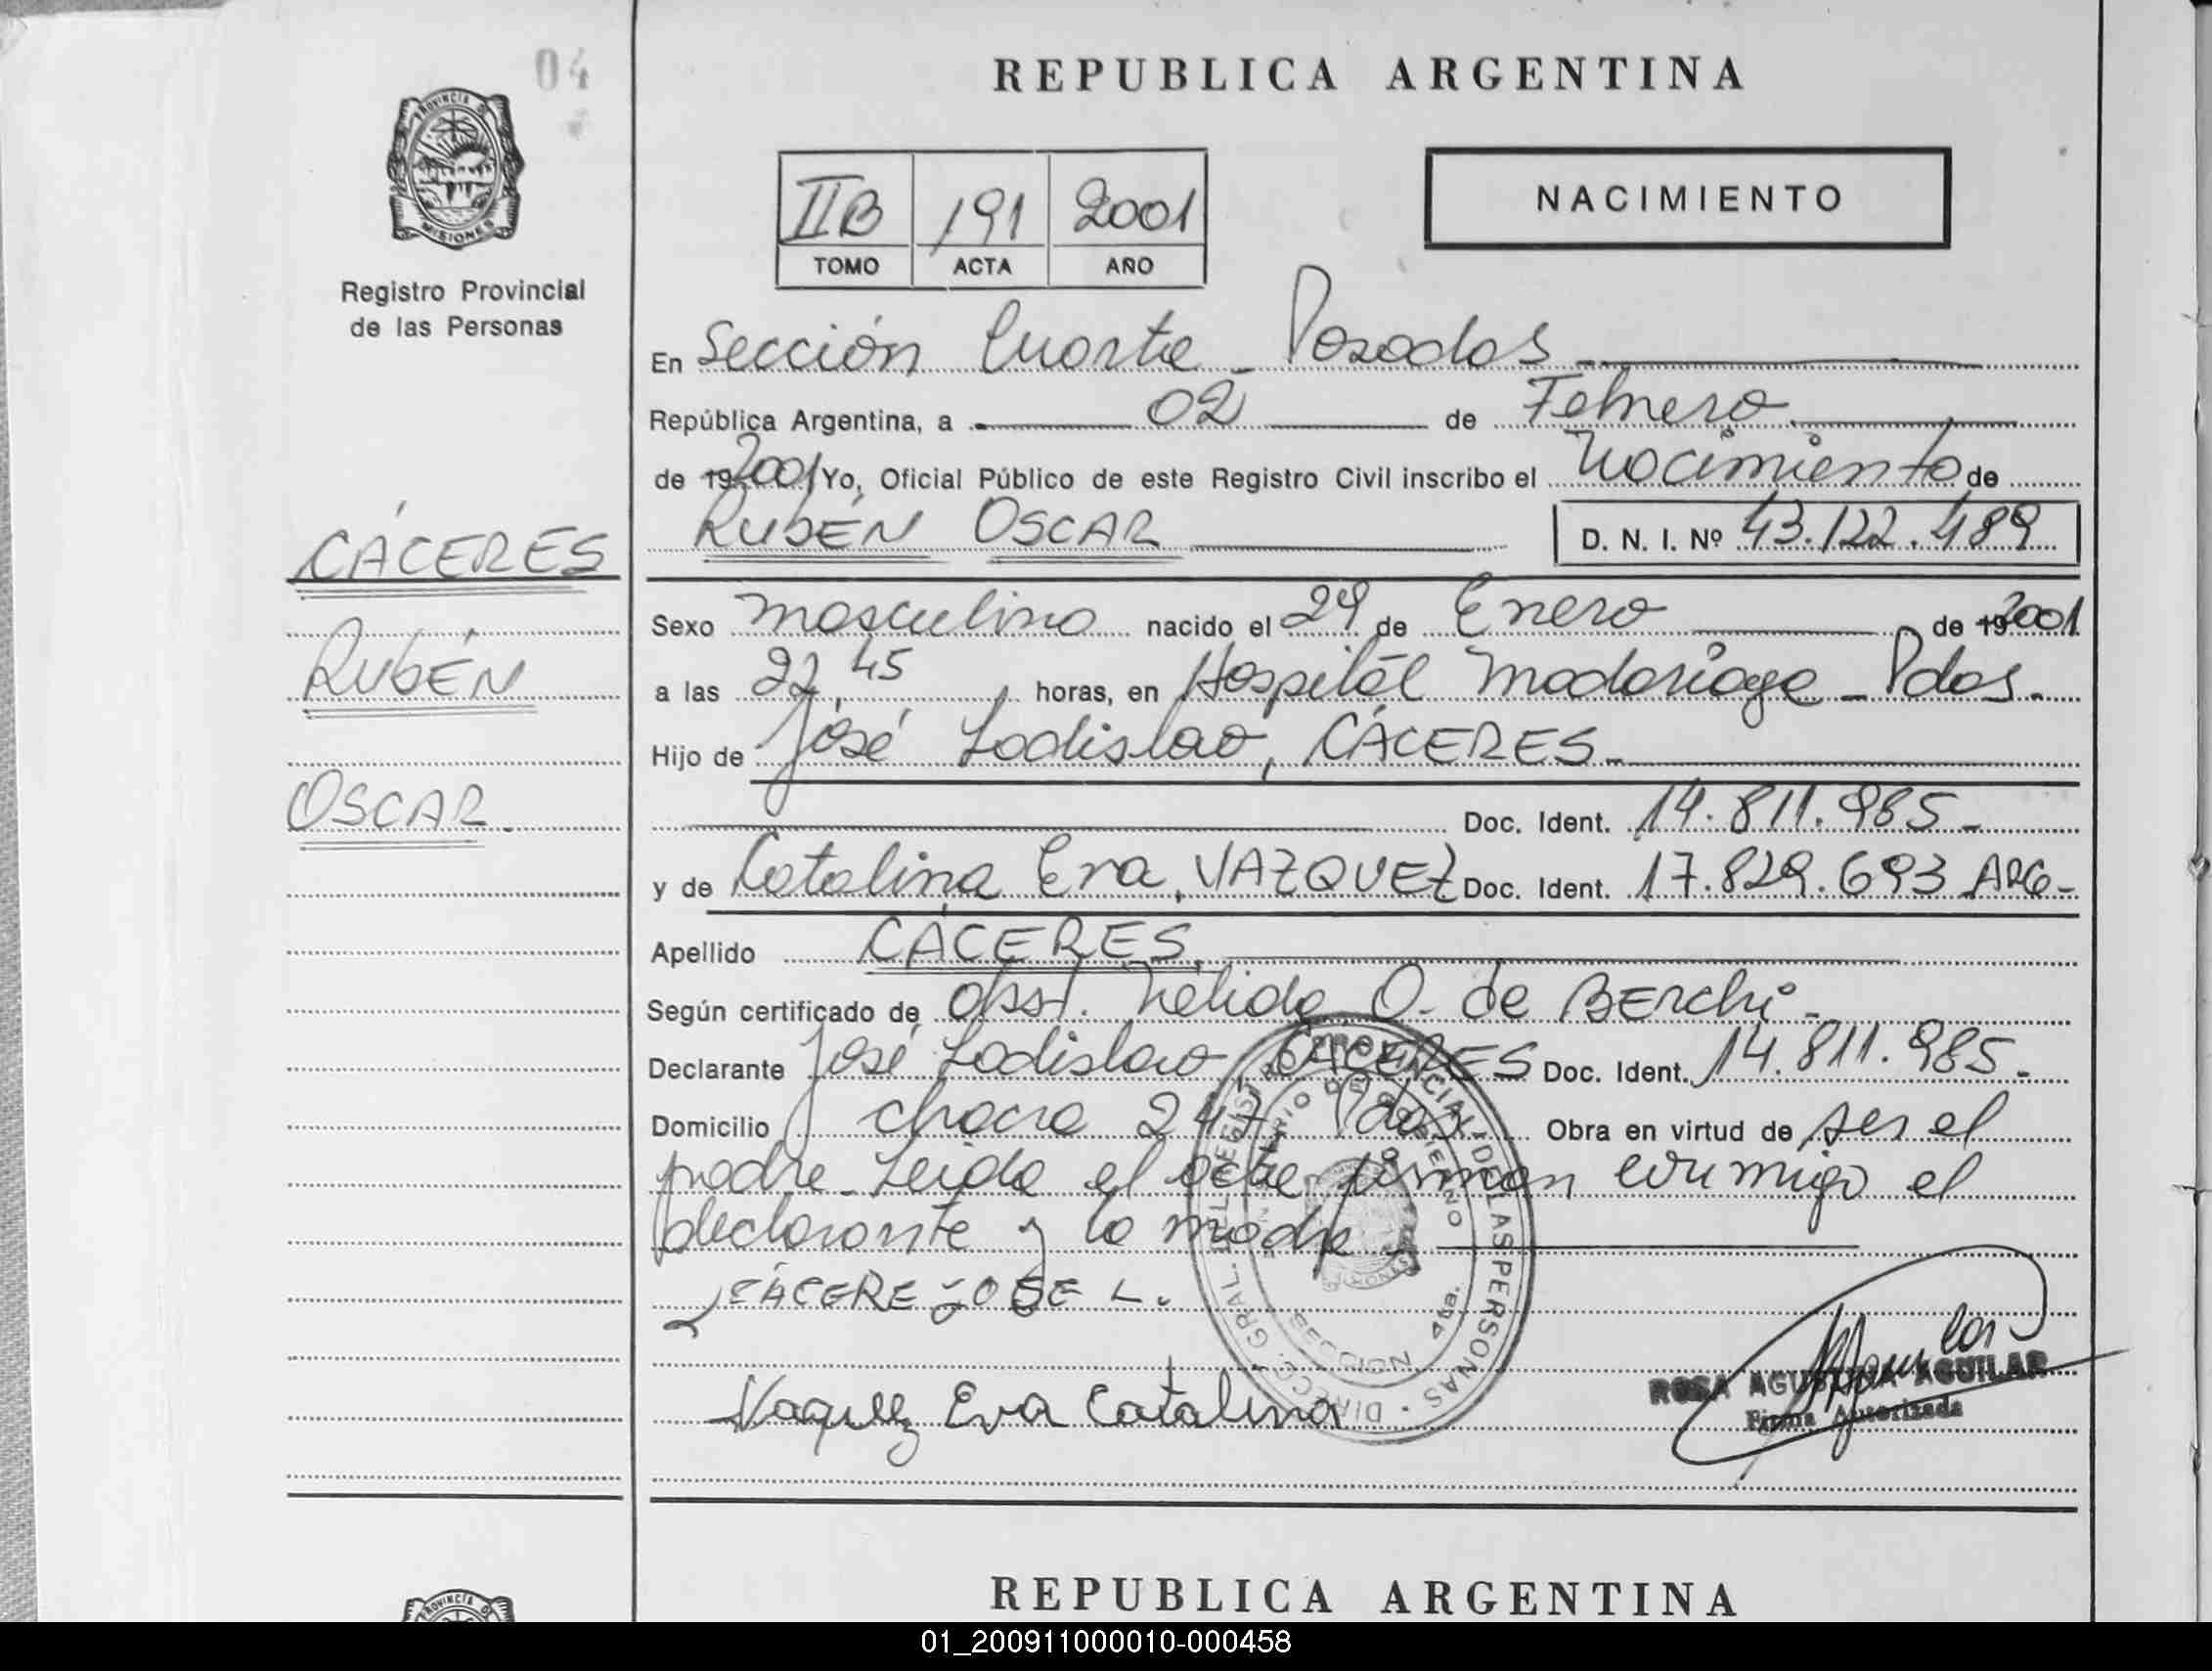 04
PROVINCIA D
MISIONES
Registro Provincial
de las Personas
CÁCERES
RUBÉN
OSCAR
REPUBLICA ARGENTINA
IIB 191 2001
TOMO ACTA AÑO
NACIMIENTO
En Sección Cuarta - Posadas -
República Argentina, a 02 de Febrero
de 19 2001 Yo, Oficial Público de este Registro Civil inscribo el Nacimiento de
RUBÉN OSCAR D. N. I. Nº 43.122.489
Sexo masculino nacido el 29 de Enero de 19 2001
a las 22,45 horas, en Hospital Madariaga - Pdas.
Hijo de José Ladislao, CÁCERES -
Doc. Ident. 14.811.985 -
y de Catalina Eva, VAZQUEZ Doc. Ident. 17.829.693 ARG -
Apellido CÁCERES.
Según certificado de Obst. Nelida O. de BERchi -
Declarante José Ladislao, CÁCERES Doc. Ident. 14.811.985 -
Domicilio chacra 247 Pdas. Obra en virtud de ser el
padre - Leida el acta firman conmigo el
declarante y la madre -
CÁCERE JOSE L.
Vaquez Eva Catalina
DIRECC. GRAL. DEL REGISTRO PROVINCIAL DE LAS PERSONAS
MINISTERIO DE GOBIERNO
SECCION 4ta.
Aguilar
ROSA AGUSTINA AGUILAR
Firma Autorizada
PROVINCIA D
REPUBLICA ARGENTINA
01_200911000010-000458